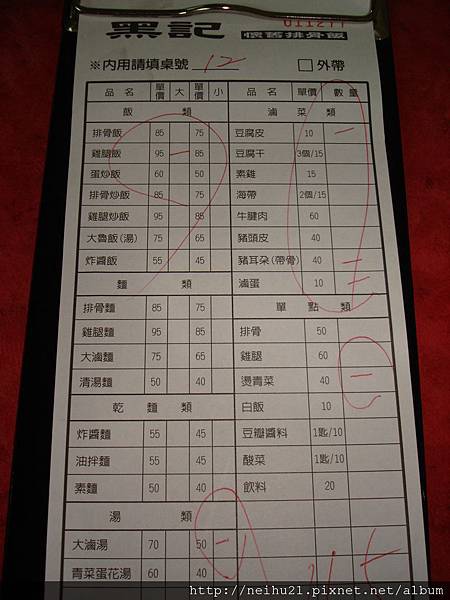 黑記 懷舊排骨飯
011277
※內用請填桌號 12 □外帶
品名 單價 大 單價 小 品名 單價 數量
飯類 滷菜類
排骨飯 85 75 豆腐皮 10 一
雞腿飯 95 一 85 豆腐干 3個/15
蛋炒飯 60 50 素雞 15
排骨炒飯 85 75 海帶 2個/15
雞腿炒飯 95 85 牛腱肉 60
大魯飯(湯) 75 65 豬頭皮 40
炸醬飯 55 45 豬耳朵(帶骨) 40 二
麵類 滷蛋 10 二
排骨麵 85 75 單點類
雞腿麵 95 85 排骨 50
大滷麵 75 65 雞腿 60
清湯麵 50 40 燙青菜 40 一
乾麵類 白飯 10
炸醬麵 55 45 豆瓣醬料 1匙/10
油拌麵 55 45 酸菜 1匙/10
素麵 50 40 飲料 20
湯類
大滷湯 70 50 一
青菜蛋花湯 60 40
http://neihu21.pixnet.net/album